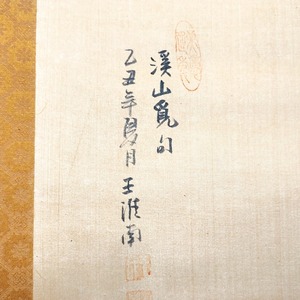 溪山覓句
乙丑年夏月王淮南